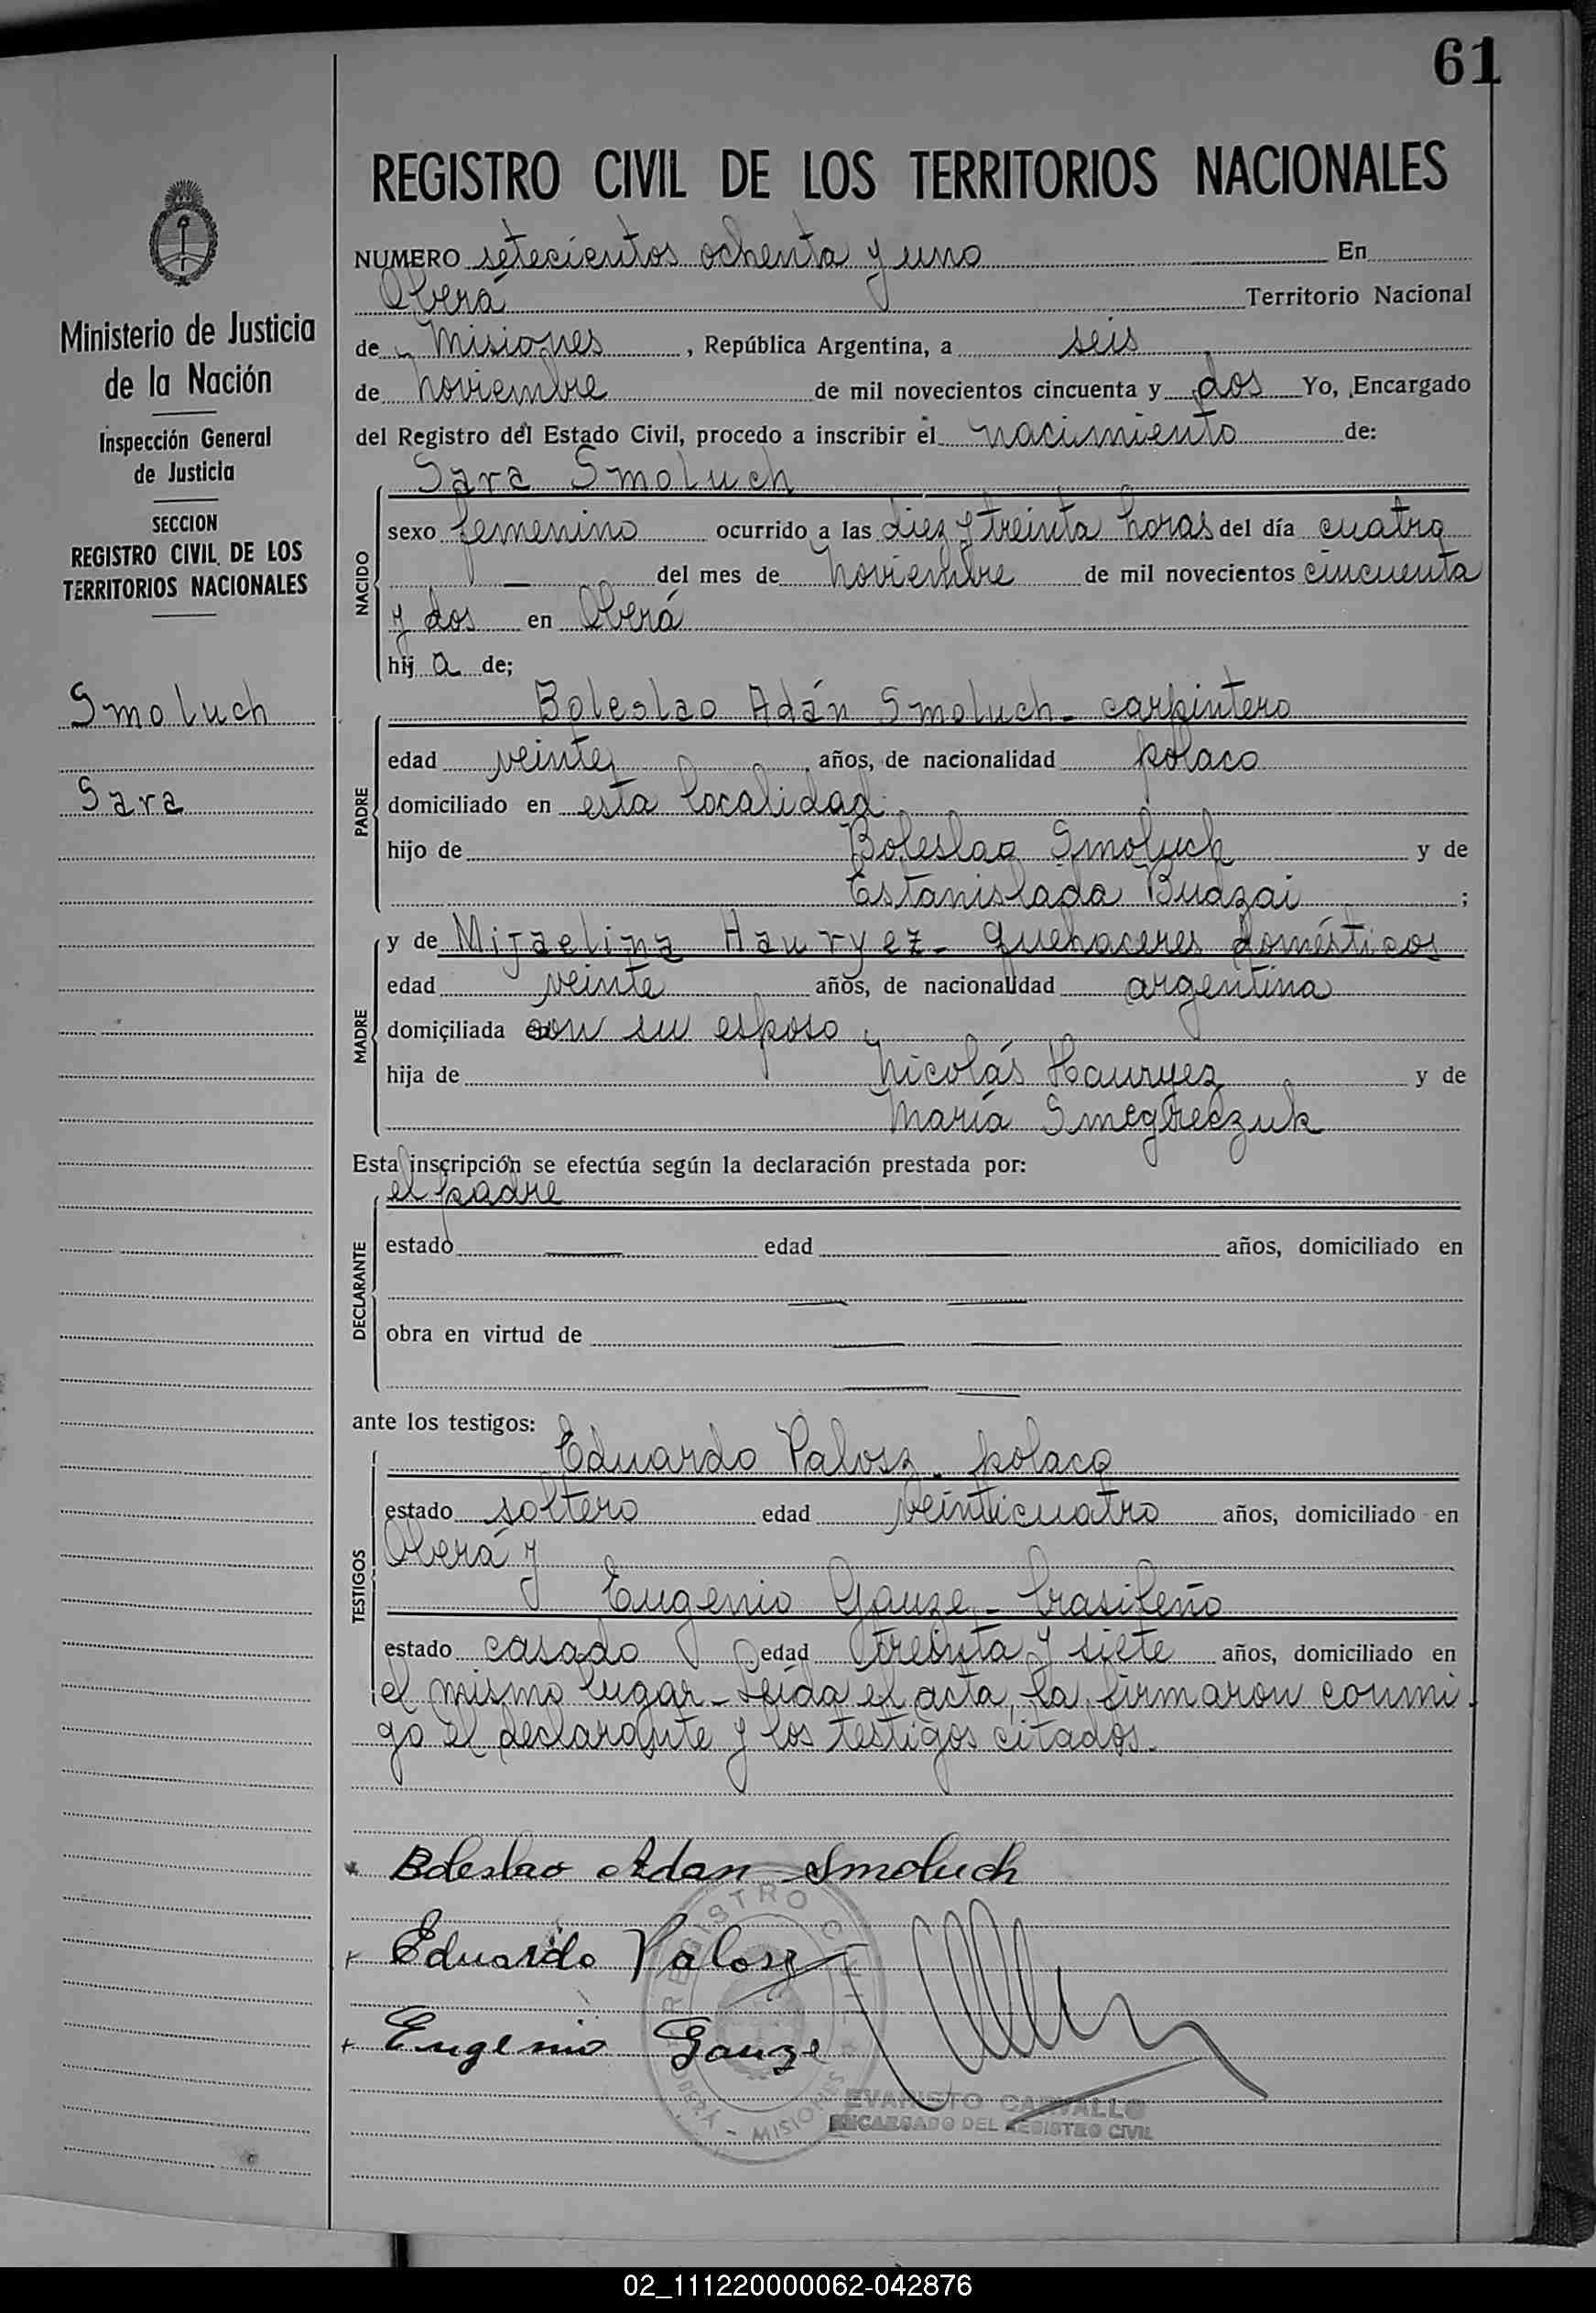 61
REGISTRO CIVIL DE LOS TERRITORIOS NACIONALES
Ministerio de Justicia
de la Nación
Inspección General
de Justicia
SECCION
REGISTRO CIVIL DE LOS
TERRITORIOS NACIONALES
Smoluch
Sara
NUMERO setecientos ochenta y uno En
Oberá Territorio Nacional
de Misiones, República Argentina, a seis
de noviembre de mil novecientos cincuenta y dos Yo, Encargado
del Registro del Estado Civil, procedo a inscribir el nacimiento de:
Sara Smoluch
NACIDO
sexo femenino ocurrido a las diez y treinta horas del día cuatro
— del mes de noviembre de mil novecientos cincuenta
y dos en Oberá
hij a de;
Boleslao Adán Smoluch - carpintero
PADRE
edad veinte años, de nacionalidad polaco
domiciliado en esta localidad
hijo de Boleslao Smoluch y de
Estanislada Budzai ;
y de Mijaelina Hauryez - quehaceres domésticos
MADRE
edad veinte años, de nacionalidad argentina
domiciliada con su esposo
hija de Nicolás Hauryez y de
María Smegreczuk
Esta inscripción se efectúa según la declaración prestada por:
el padre
DECLARANTE
estado — edad — años, domiciliado en
— —
obra en virtud de — —
— —
ante los testigos:
Eduardo Palosz - polaco
TESTIGOS
estado soltero edad veinticuatro años, domiciliado en
Oberá y
Eugenio Gauze - brasileño
estado casado edad treinta y siete años, domiciliado en
el mismo lugar - Leída el acta, la firmaron conmi
go el declarante y los testigos citados.
Boleslao Adan Smoluch
Eduardo Palosz
Eugenio Gauze
REGISTRO CIVIL
OBERÁ - MISIONES
EVARISTO CARVALLO
ENCARGADO DEL REGISTRO CIVIL
02_111220000062-042876